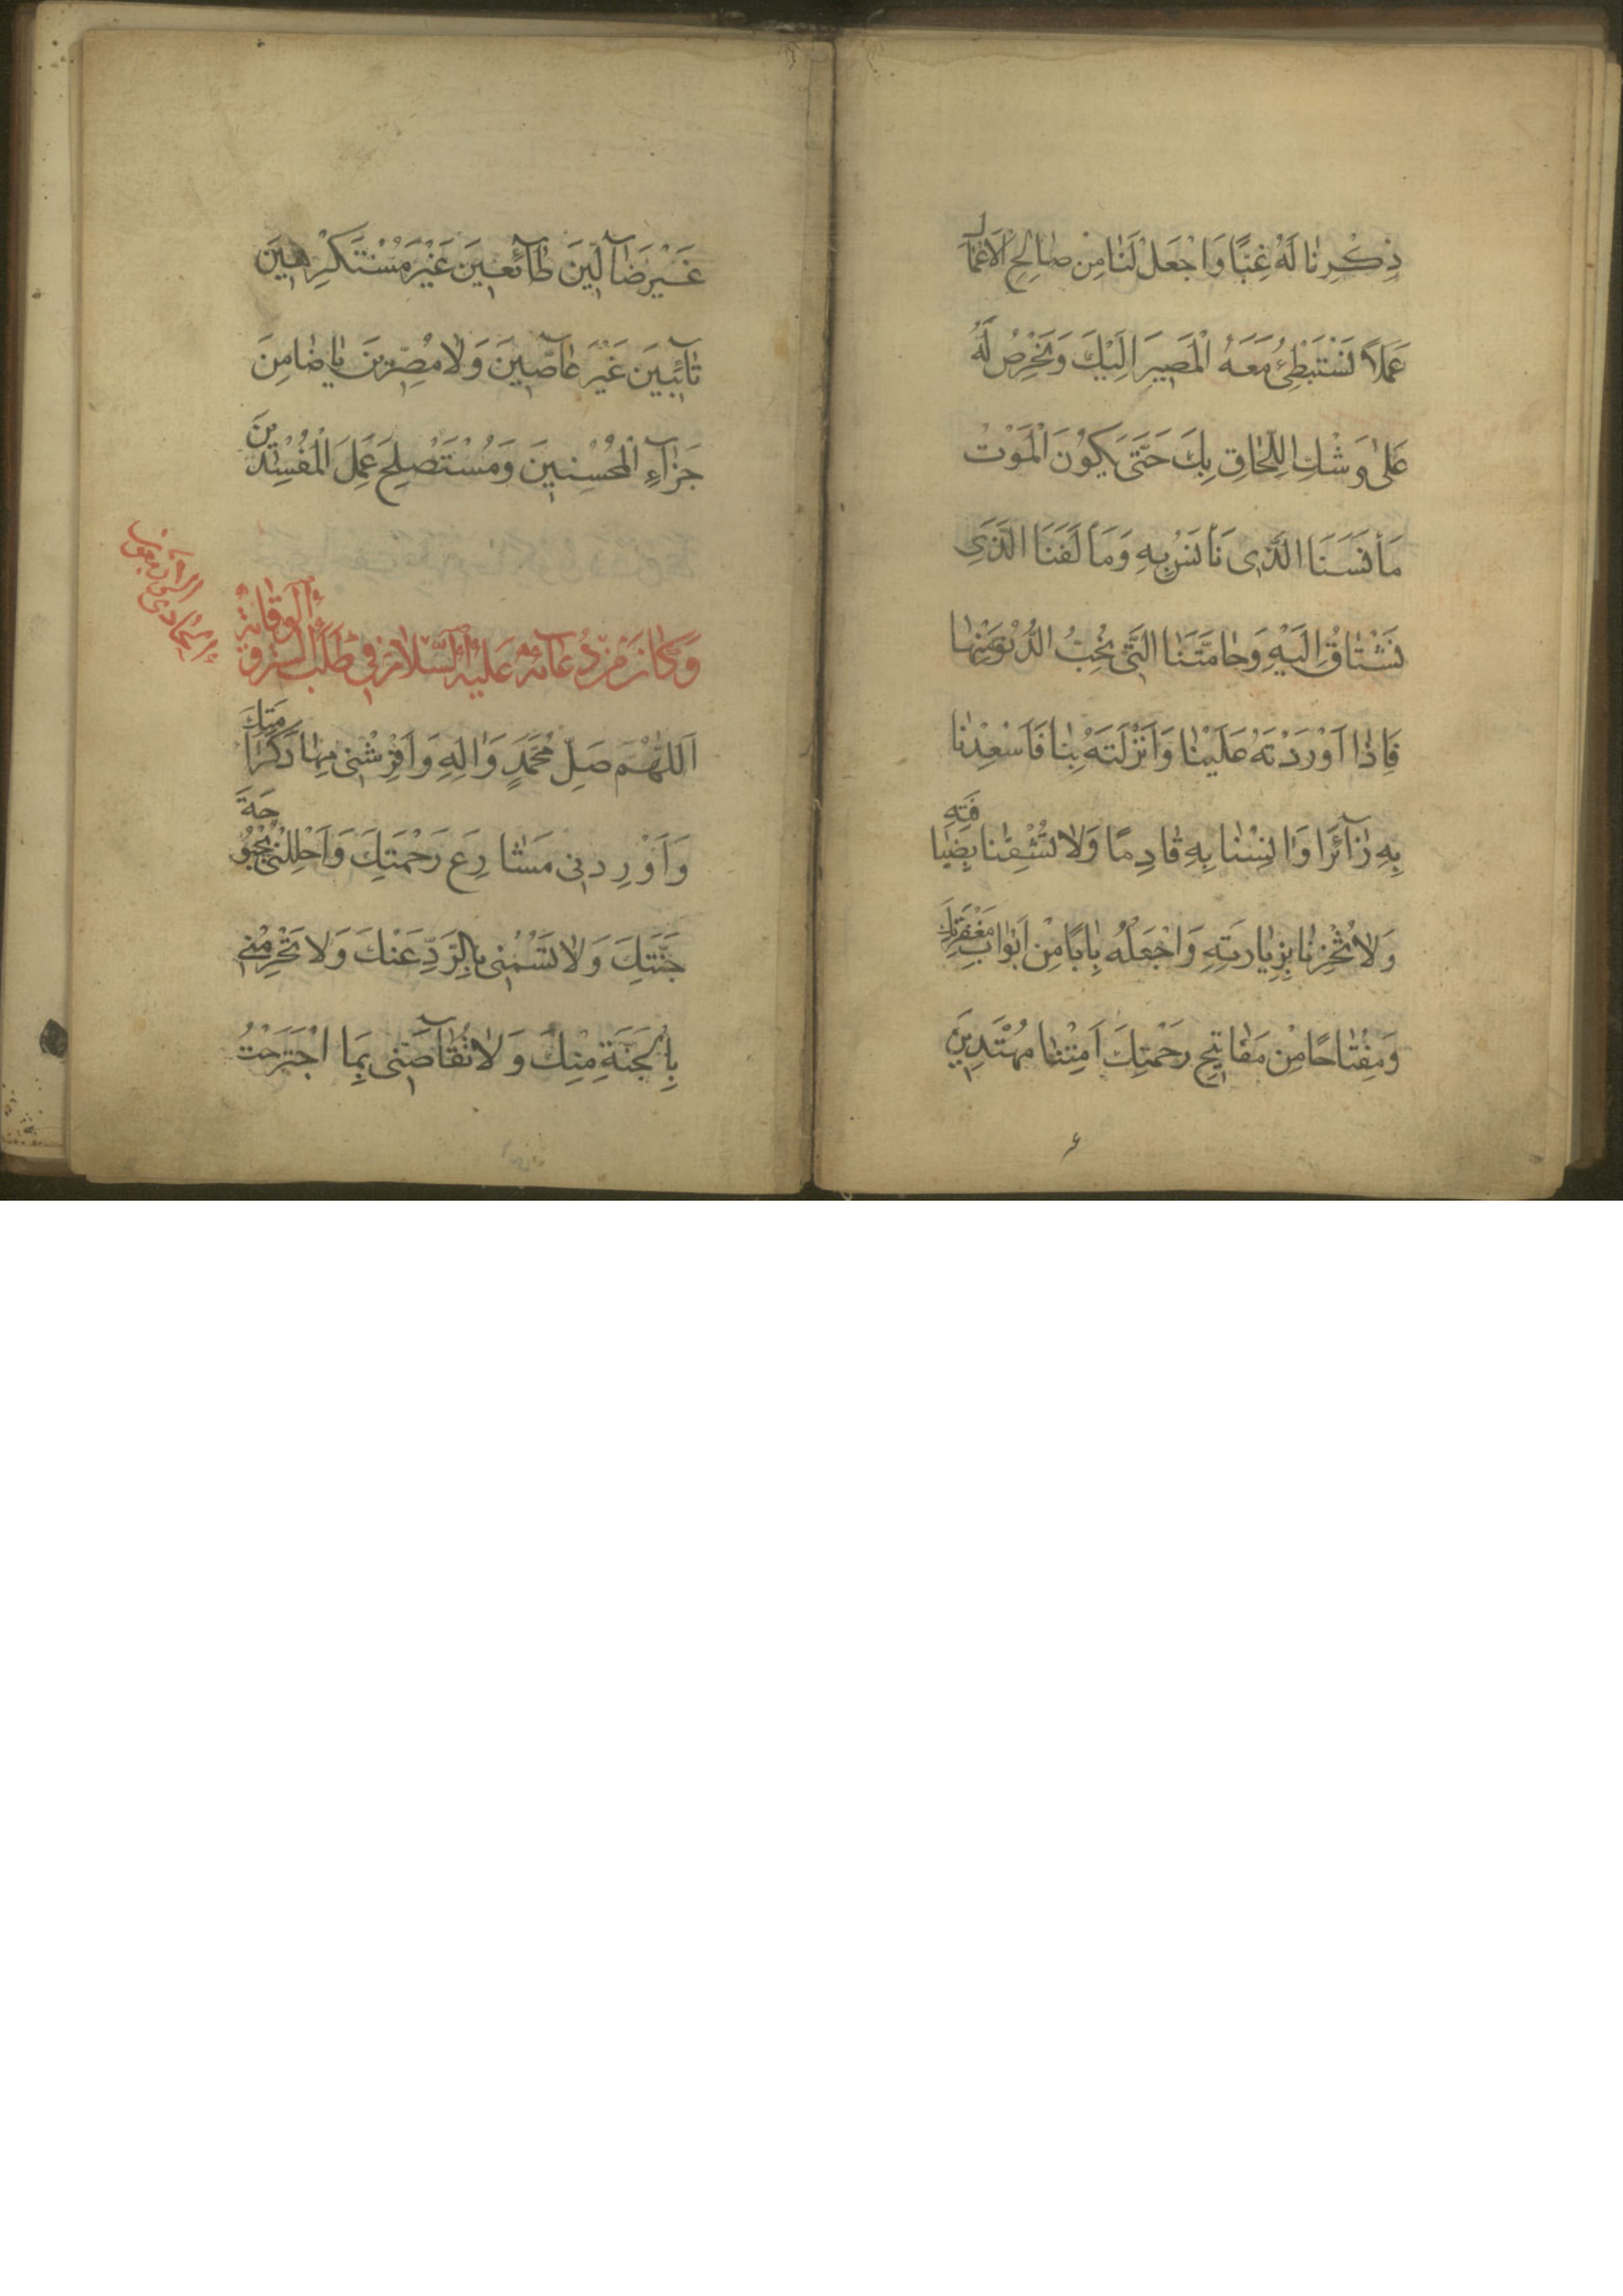 ذِكْرِنَا لَهُ غِبًّا وَاجْعَلْ لَنَا مِنْ صَالِحِ الْاَعْمَالِ
عَمَلًا نَسْتَبْطِئُ مَعَهُ الْمَصِيرَ اِلَيْكَ وَنَحْرِصُ لَهُ
عَلٰى وَشْكِ اللِّحَاقِ بِكَ حَتّٰى يَكُونَ الْمَوْتُ
مَأْنَسَنَا الَّذِى نَأْنَسُ بِهِ وَمَأْلَفَنَا الَّذِى
نَشْتَاقُ اِلَيْهِ وَحَامَّتَنَا الَّتِى نُحِبُّ الدُّنُوَّ مِنْهَا
فَاِذَا اَوْرَدْتَهُ عَلَيْنَا وَاَنْزَلْتَهُ بِنَا فَاَسْعِدْنَا
بِهِ زَآئِرًا وَاٰنِسْنَا بِهِ قَادِمًا وَلَا تُشْقِنَا بِضِيَافَتِهِ
وَلَا تُخْزِنَا بِزِيَارَتِهِ وَاجْعَلْهُ بَابًا مِنْ اَبْوَابِ مَغْفِرَتِكَ
وَمِفْتَاحًا مِنْ مَفَاتِيحِ رَحْمَتِكَ اَمِتْنَا مُهْتَدِينَ
غَيْرَ ضَآلِّينَ طَآئِعِينَ غَيْرَ مُسْتَكْرِهِينَ
تَآئِبِينَ غَيْرَ عَاصِينَ وَلَا مُصِرِّينَ يَا ضَامِنَ
جَزَآءِ الْمُحْسِنِينَ وَمُسْتَصْلِحَ عَمَلِ الْمُفْسِدِينَ
وَكَانَ مِنْ دُعَآئِهِ عَلَيْهِ السَّلَامُ فِى طَلَبِ السِّتْرِ وَ الْوِقَايَةِ
اَللّٰهُمَّ صَلِّ مُحَمَّدٍ وَاٰلِهِ وَاَفْرِشْنِى مِهَادَ كَرَامَتِكَ
وَاَوْرِدْنِى مَشَارِعَ رَحْمَتِكَ وَاَحْلِلْنِى بُحْبُوحَةَ
جَنَّتِكَ وَلَا تَسُمْنِى بِالرَّدِّ عَنْكَ وَلَا تَحْرِمْنِى
بِالْخَيْبَةِ مِنْكَ وَلَا تُقَآصِّنِى بِمَا اجْتَرَحْتُ